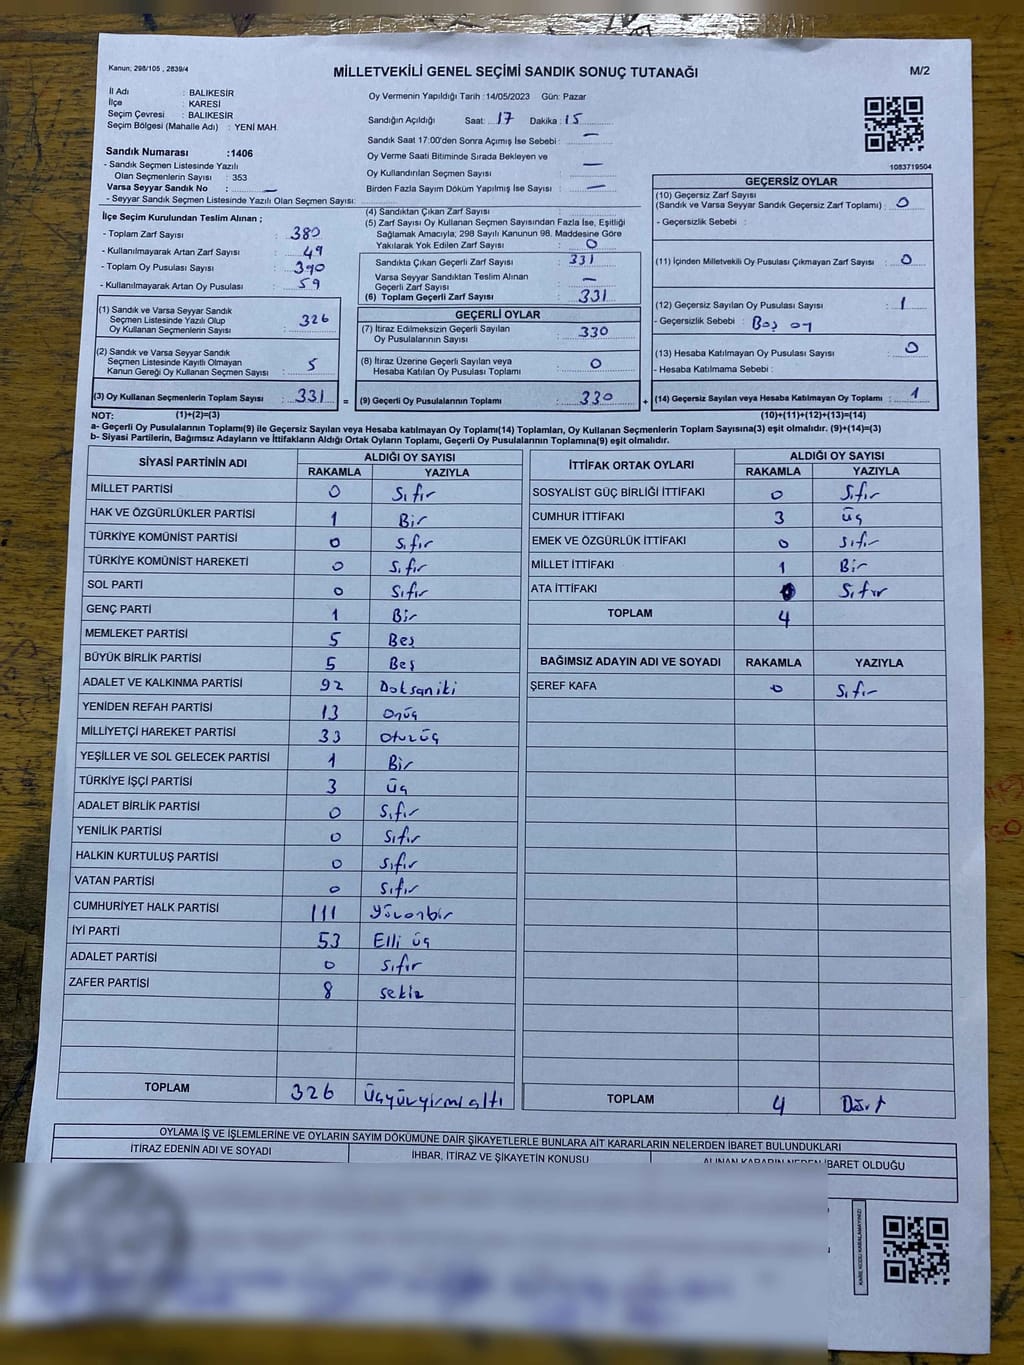 Kanun; 298/105 , 2839/4
MİLLETVEKİLİ GENEL SEÇİMİ SANDIK SONUÇ TUTANAĞI
M/2
İl Adı : BALIKESİR
İlçe : KARESİ
Seçim Çevresi : BALIKESİR
Seçim Bölgesi (Mahalle Adı) : YENİ MAH.
Oy Vermenin Yapıldığı Tarih :14/05/2023 Gün: Pazar
Sandığın Açıldığı Saat: 17 Dakika : 15
Sandık Saat 17:00'den Sonra Açılmış İse Sebebi : —
Oy Verme Saati Bitiminde Sırada Bekleyen ve
Oy Kullandırılan Seçmen Sayısı : —
Birden Fazla Sayım Döküm Yapılmış İse Sayısı : —
1083719504
Sandık Numarası :1406
- Sandık Seçmen Listesinde Yazılı
Olan Seçmenlerin Sayısı : 353
Varsa Seyyar Sandık No : —
- Seyyar Sandık Seçmen Listesinde Yazılı Olan Seçmen Sayısı:
İlçe Seçim Kurulundan Teslim Alınan ;
- Toplam Zarf Sayısı : 380
- Kullanılmayarak Artan Zarf Sayısı : 49
- Toplam Oy Pusulası Sayısı : 390
- Kullanılmayarak Artan Oy Pusulası : 59
(1) Sandık ve Varsa Seyyar Sandık
Seçmen Listesinde Yazılı Olup
Oy Kullanan Seçmenlerin Sayısı : 326
(2) Sandık ve Varsa Seyyar Sandık
Seçmen Listesinde Kayıtlı Olmayan
Kanun Gereği Oy Kullanan Seçmen Sayısı : 5
(3) Oy Kullanan Seçmenlerin Toplam Sayısı : 331 =
(4) Sandıktan Çıkan Zarf Sayısı :
(5) Zarf Sayısı Oy Kullanan Seçmen Sayısından Fazla İse, Eşitliği
Sağlamak Amacıyla; 298 Sayılı Kanunun 98. Maddesine Göre
Yakılarak Yok Edilen Zarf Sayısı : 0
Sandıkta Çıkan Geçerli Zarf Sayısı : 331
Varsa Seyyar Sandıktan Teslim Alınan
Geçerli Zarf Sayısı : —
(6) Toplam Geçerli Zarf Sayısı : 331
GEÇERLİ OYLAR
(7) İtiraz Edilmeksizin Geçerli Sayılan
Oy Pusulalarının Sayısı : 330
(8) İtiraz Üzerine Geçerli Sayılan veya
Hesaba Katılan Oy Pusulası Toplamı : 0
(9) Geçerli Oy Pusulalarının Toplamı : 330 +
GEÇERSİZ OYLAR
(10) Geçersiz Zarf Sayısı
(Sandık ve Varsa Seyyar Sandık Geçersiz Zarf Toplamı) : 0
- Geçersizlik Sebebi :
(11) İçinden Milletvekili Oy Pusulası Çıkmayan Zarf Sayısı : 0
(12) Geçersiz Sayılan Oy Pusulası Sayısı : 1
- Geçersizlik Sebebi : Boş oy
(13) Hesaba Katılmayan Oy Pusulası Sayısı : 0
- Hesaba Katılmama Sebebi :
(14) Geçersiz Sayılan veya Hesaba Katılmayan Oy Toplamı : 1
NOT: (1)+(2)=(3) (10)+(11)+(12)+(13)=(14)
a- Geçerli Oy Pusulalarının Toplamı(9) ile Geçersiz Sayılan veya Hesaba katılmayan Oy Toplamı(14) Toplamları, Oy Kullanan Seçmenlerin Toplam Sayısına(3) eşit olmalıdır. (9)+(14)=(3)
b- Siyasi Partilerin, Bağımsız Adayların ve İttifakların Aldığı Ortak Oyların Toplamı, Geçerli Oy Pusulalarının Toplamına(9) eşit olmalıdır.
SİYASİ PARTİNİN ADI ALDIĞI OY SAYISI
RAKAMLA YAZIYLA
MİLLET PARTİSİ 0 Sıfır
HAK VE ÖZGÜRLÜKLER PARTİSİ 1 Bir
TÜRKİYE KOMÜNİST PARTİSİ 0 Sıfır
TÜRKİYE KOMÜNİST HAREKETİ 0 Sıfır
SOL PARTİ 0 Sıfır
GENÇ PARTİ 1 Bir
MEMLEKET PARTİSİ 5 Beş
BÜYÜK BİRLİK PARTİSİ 5 Beş
ADALET VE KALKINMA PARTİSİ 92 Doksaniki
YENİDEN REFAH PARTİSİ 13 Onüç
MİLLİYETÇİ HAREKET PARTİSİ 33 Otuzüç
YEŞİLLER VE SOL GELECEK PARTİSİ 1 Bir
TÜRKİYE İŞÇİ PARTİSİ 3 Üç
ADALET BİRLİK PARTİSİ 0 Sıfır
YENİLİK PARTİSİ 0 Sıfır
HALKIN KURTULUŞ PARTİSİ 0 Sıfır
VATAN PARTİSİ 0 Sıfır
CUMHURİYET HALK PARTİSİ 111 Yüzonbir
İYİ PARTİ 53 Elli üç
ADALET PARTİSİ 0 Sıfır
ZAFER PARTİSİ 8 sekiz
TOPLAM 326 Üçyüzyirmialtı
İTTİFAK ORTAK OYLARI ALDIĞI OY SAYISI
RAKAMLA YAZIYLA
SOSYALİST GÜÇ BİRLİĞİ İTTİFAKI 0 Sıfır
CUMHUR İTTİFAKI 3 Üç
EMEK VE ÖZGÜRLÜK İTTİFAKI 0 Sıfır
MİLLET İTTİFAKI 1 Bir
ATA İTTİFAKI 0 Sıfır
TOPLAM 4
BAĞIMSIZ ADAYIN ADI VE SOYADI RAKAMLA YAZIYLA
ŞEREF KAFA 0 Sıfır
TOPLAM 4 Dört
OYLAMA İŞ VE İŞLEMLERİNE VE OYLARIN SAYIM DÖKÜMÜNE DAİR ŞİKAYETLERLE BUNLARA AİT KARARLARIN NELERDEN İBARET BULUNDUKLARI
İTİRAZ EDENİN ADI VE SOYADI İHBAR, İTİRAZ VE ŞİKAYETİN KONUSU ALINAN KARARIN NEDEN İBARET OLDUĞU
KARE KODU KARALAMAYINIZ!